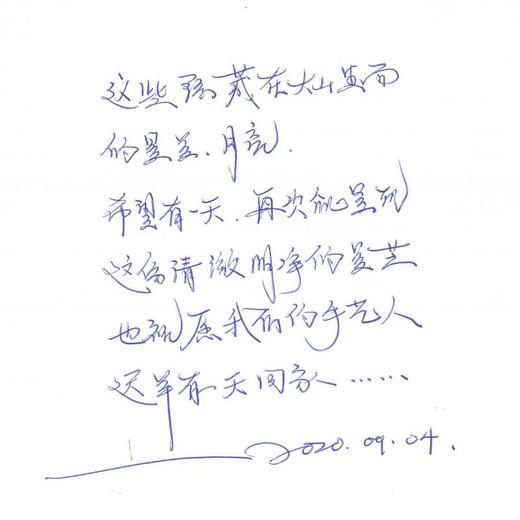 这些藏在大山里面
的星星、月亮.
希望有一天.再次能呈现
这份清澈明净的
也祝愿我们的手艺人
迟早有一天回家……
2020.09.04.